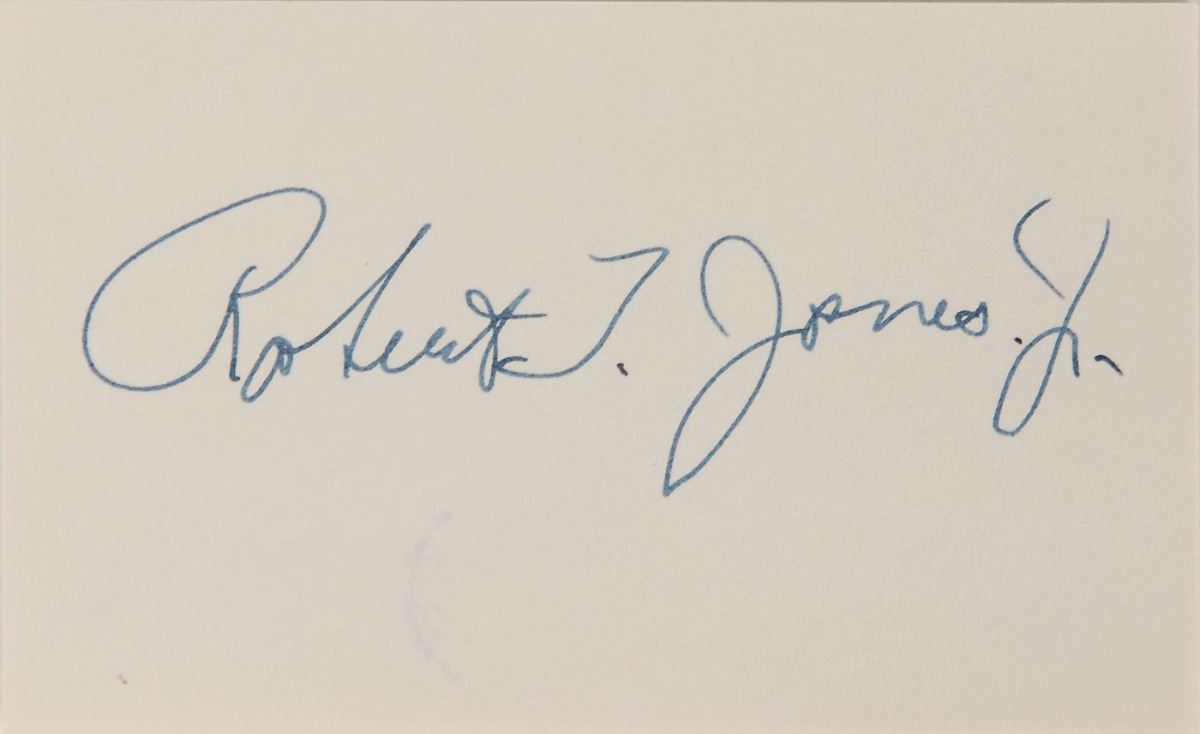 Robert T. Jones. Jr.